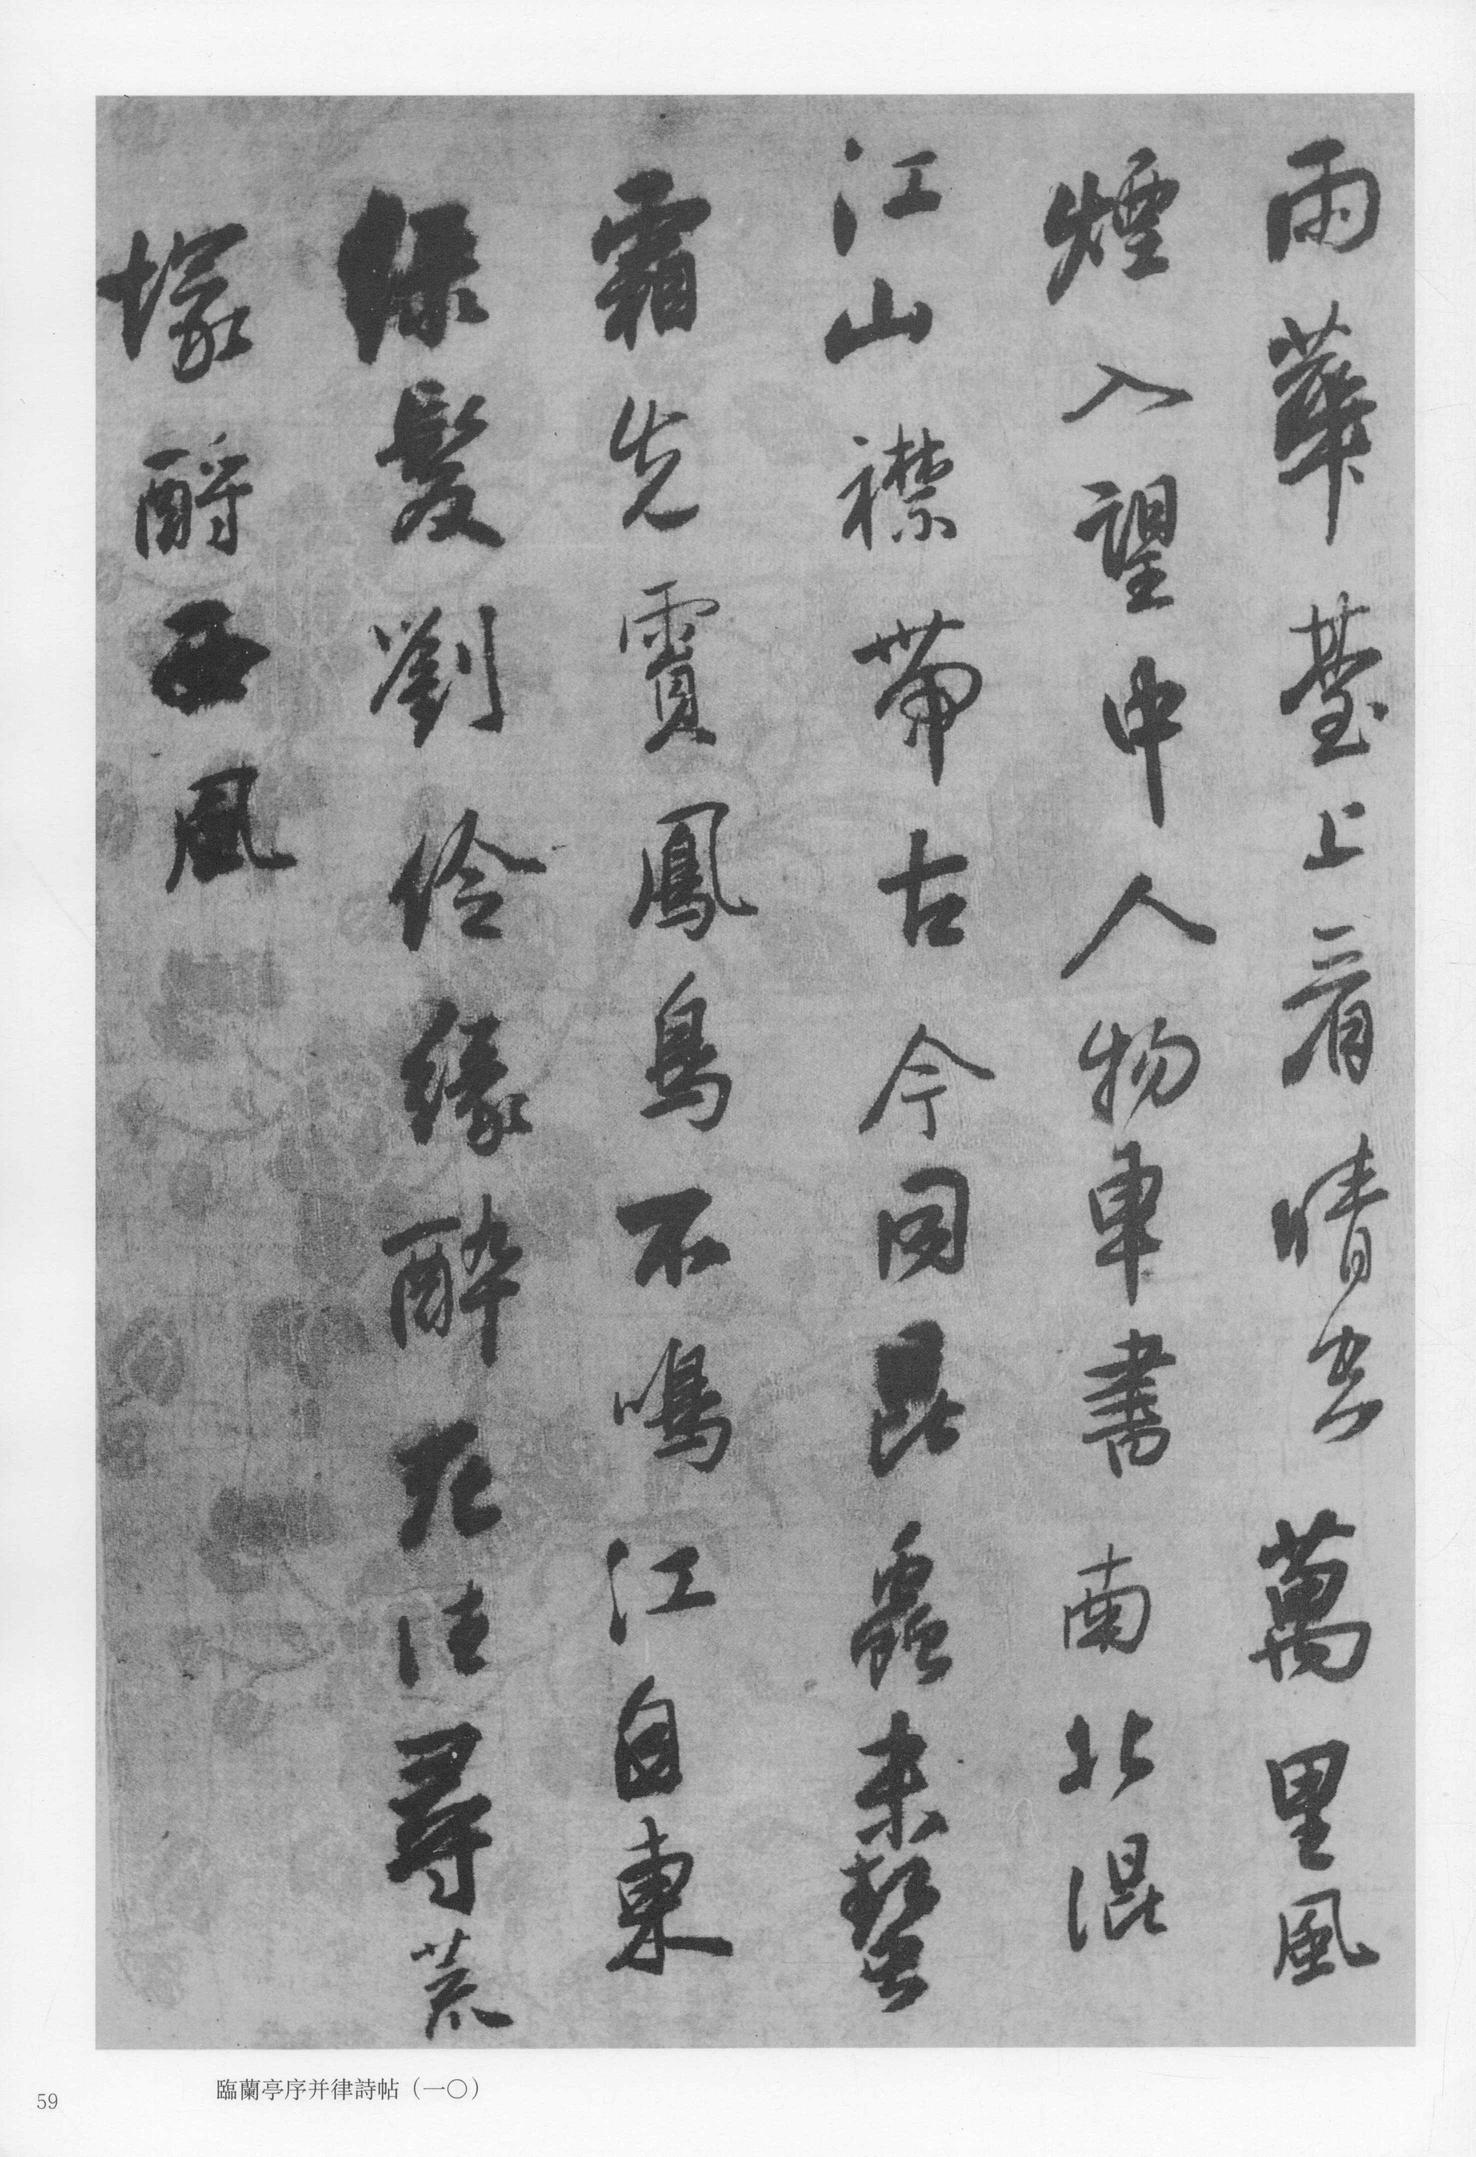 雨華臺上看晴空萬里風
煙入望中人物車書南北混
江山襟帶古今同昆蟲未蟄
霜先霣鳳鳥不鳴江自東
綠髮劉伶緣醉死往尋荒
塚酹西風
臨蘭亭序并律詩帖（一〇）
59